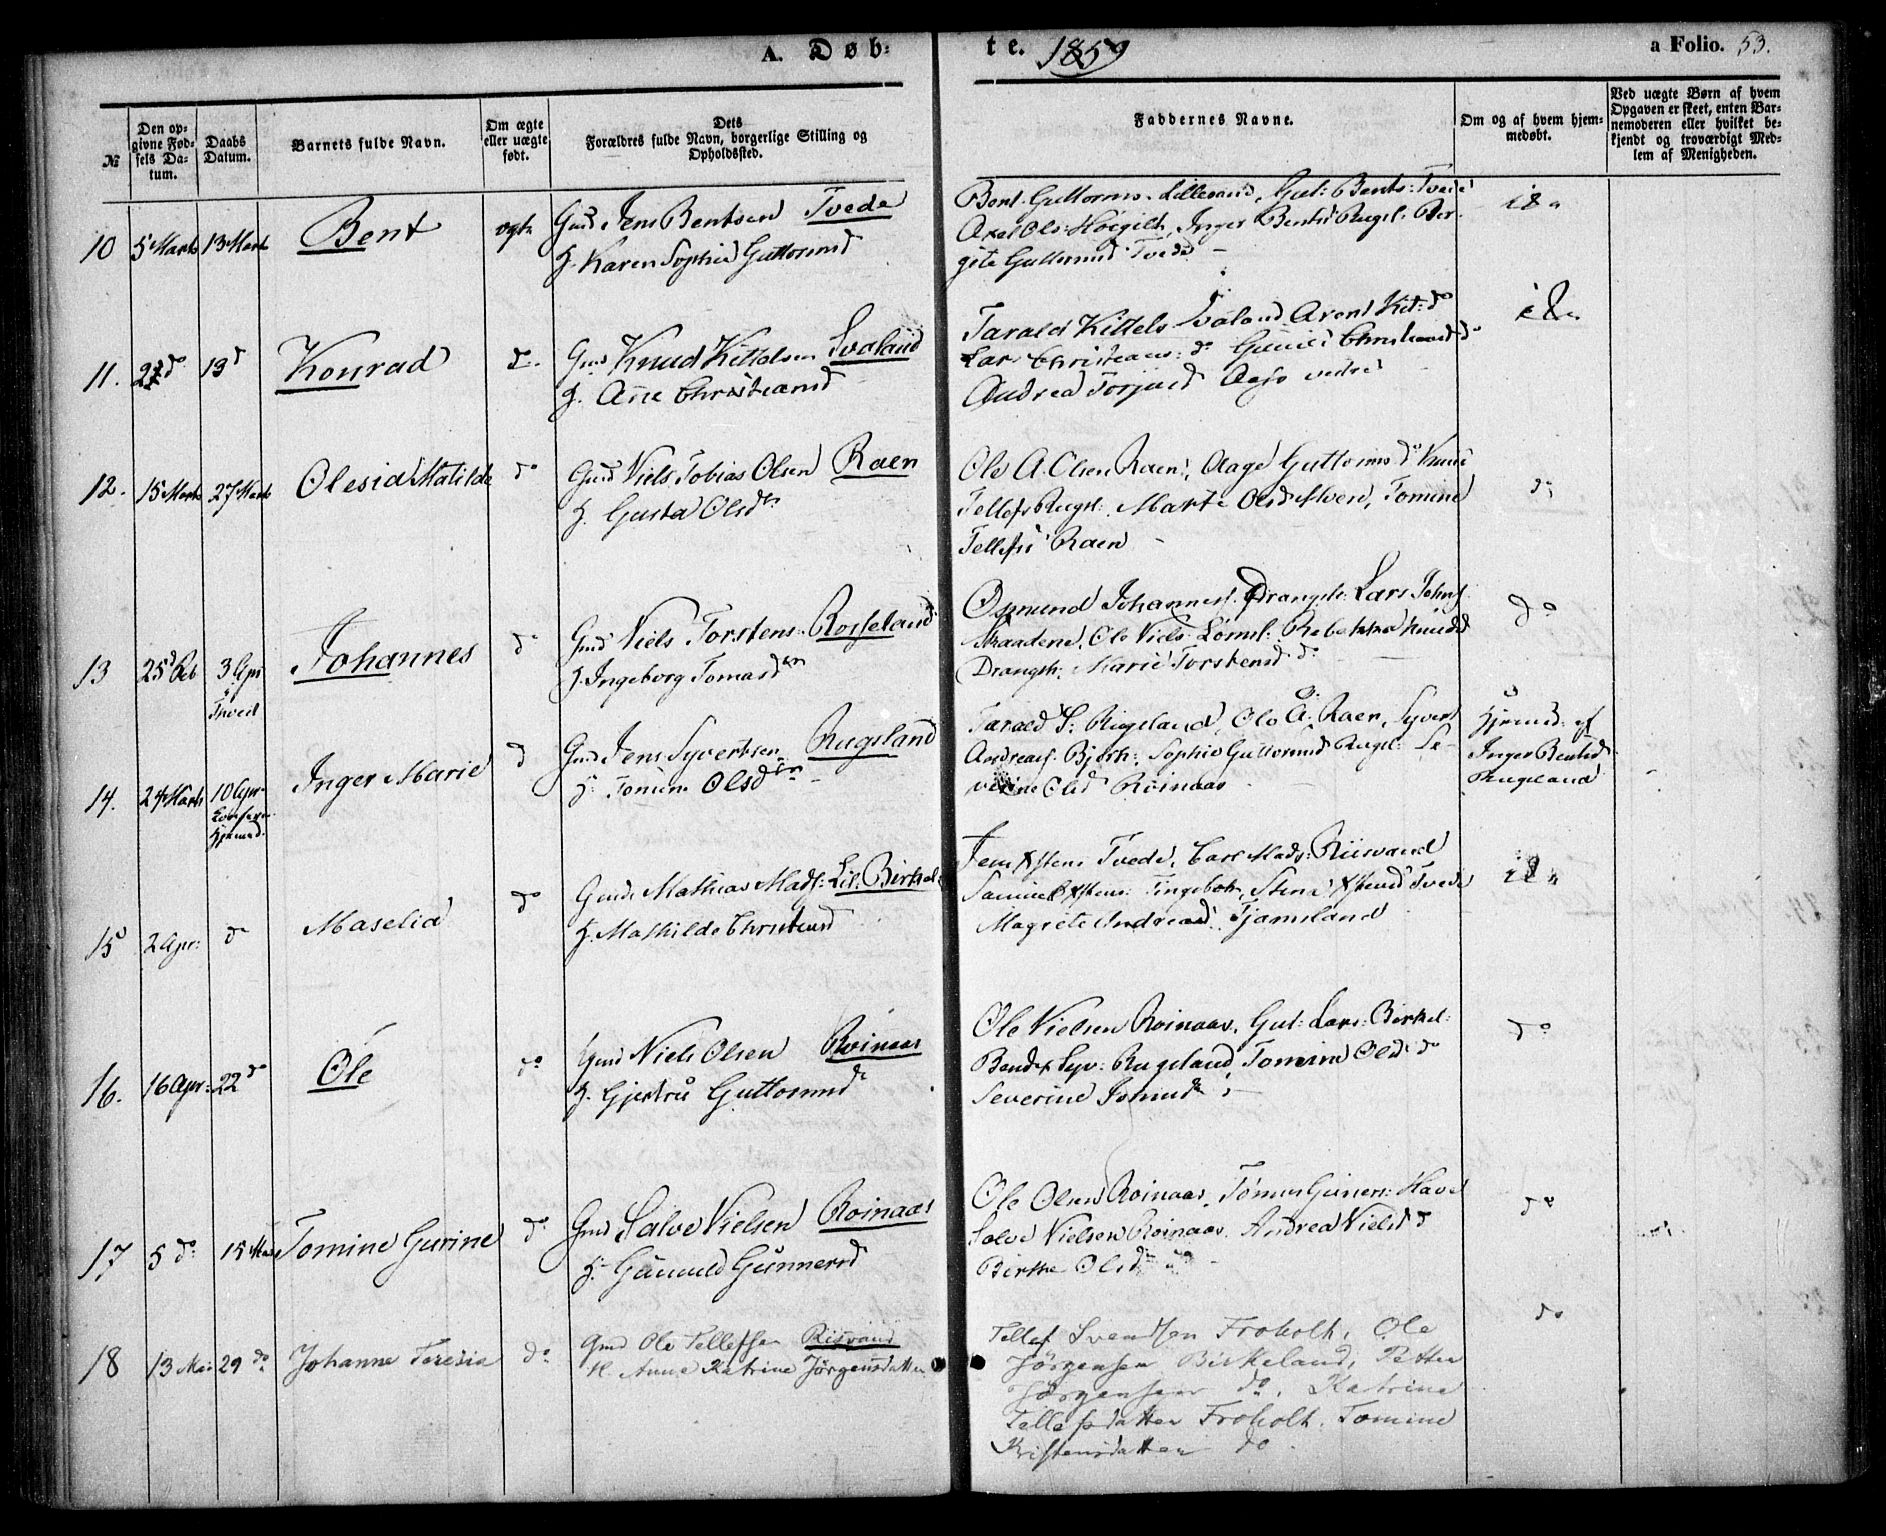 A. Døb-
te. 1859
a Folio. 53.
№
Den op-
givne Fød-
sels Da-
tum.
Daabs
Datum.
Barnets fulde Navn.
Om ægte
eller uægte
født.
Dets
Forældres fulde Navn, borgerlige Stilling og
Opholdssted.
Faddernes Navne.
Om og af hvem hjem-
medøbt.
Ved uægte Børn af hvem
Opgaven er skeet, enten Bar-
nemoderen eller hvilket be-
kjendt og troværdigt Med-
lem af Menigheden.
10 5 Marts 13 Marts Bent ægte Gmd Jens Bentsen Tvede
H. Karen Sophie Guttormsd
Bent Guttorms. Lillesand, Gut: Bents: Tvede
Axel Ols: Høegilt, Inger Bentsd Rugsl: Ber-
gite Guttormsd Tvede
11. 2 do 13 d Konrad do Gmd Knud Kittelsen Svaland
H. Anne Christiansd
Tarald Kittels Svaland Arent Kit: do
Lars Christians: do Christiansd do
Andrea Torjusd
12. 15 Marts 27 Marts Olesia Matilde do Gmd Niels Tobias Olsen Raen
H. Gusta Olsdtr
Ole A. Olsen Raen, Aage Guttorms do Knud
Tellefs Rugsl: Marte Olsd Moen, Tomine
Tellefsd Raen
13 25 Feb 3 Apr
i Tved Johannes do Gmd Niels Torstens: Rosseland
H. Ingeborg Tomasdtr
Osmund Johannes. Drangsh: Lars Johns
Straadene, Ole Niels: Lømsl: Rebekka Knudsd
Drangsh: Marie Torstensd do
14. 24 Marts 10 Apr
Hjemmd. Inger Marie d Gmd Jens Syvertsen Rugsland
H. Tomine Olsdtr
Tarald S: Rugsland, Ole A: Raen, Syvert
Andreas: Bjork: Sophie Guttormsd Rugsl: Se-
verine Olsd Röinaas
Hjemmd: af
Inger Bentsd
Rugsland
15 2 Apr: do Maselia do Gmd Mathias Mads: Lil: Birkel:
H. Mathilde Christensd
Jens Xstens Tvede, Carl Mads: Riisvand
Samuel Xstens: Tingebok, Stine Xstensd Tvede
Magrete Andreasd. Tjamsland
16. 16 Apr: 22 do Ole do Gmd Niels Olsen Roinaas
H. Gjertru Guttormsd
Ole Nielsen Roinaas, Gut: Lars: Birkel:
Bendix Syv: Rugsland, Tomine Olsd: do
Severine do
do
17 5 do 15 Mai Tomine Gurine do Gmd Salve Nielsen Roinaas
H. Gunuld Gunnersd
Ole Olsen Roinaas, Tomas Guners: Have
Salve Nielsen Roinaas, Andrea Nielsd d
Birthe Olsd do
do
18 13 Mai 29 do Johanne Teresia do Gmd Ole Tellefsen Risvand
H. Anne Katrine Jørgensdatter
Tellef Svendsen Froholt, Ole
Jørgensen Birkeland, Petter
Jørgensen do, Katrine
Tellefsdatter Froholt. Tomine
Kristensdatter do.
do